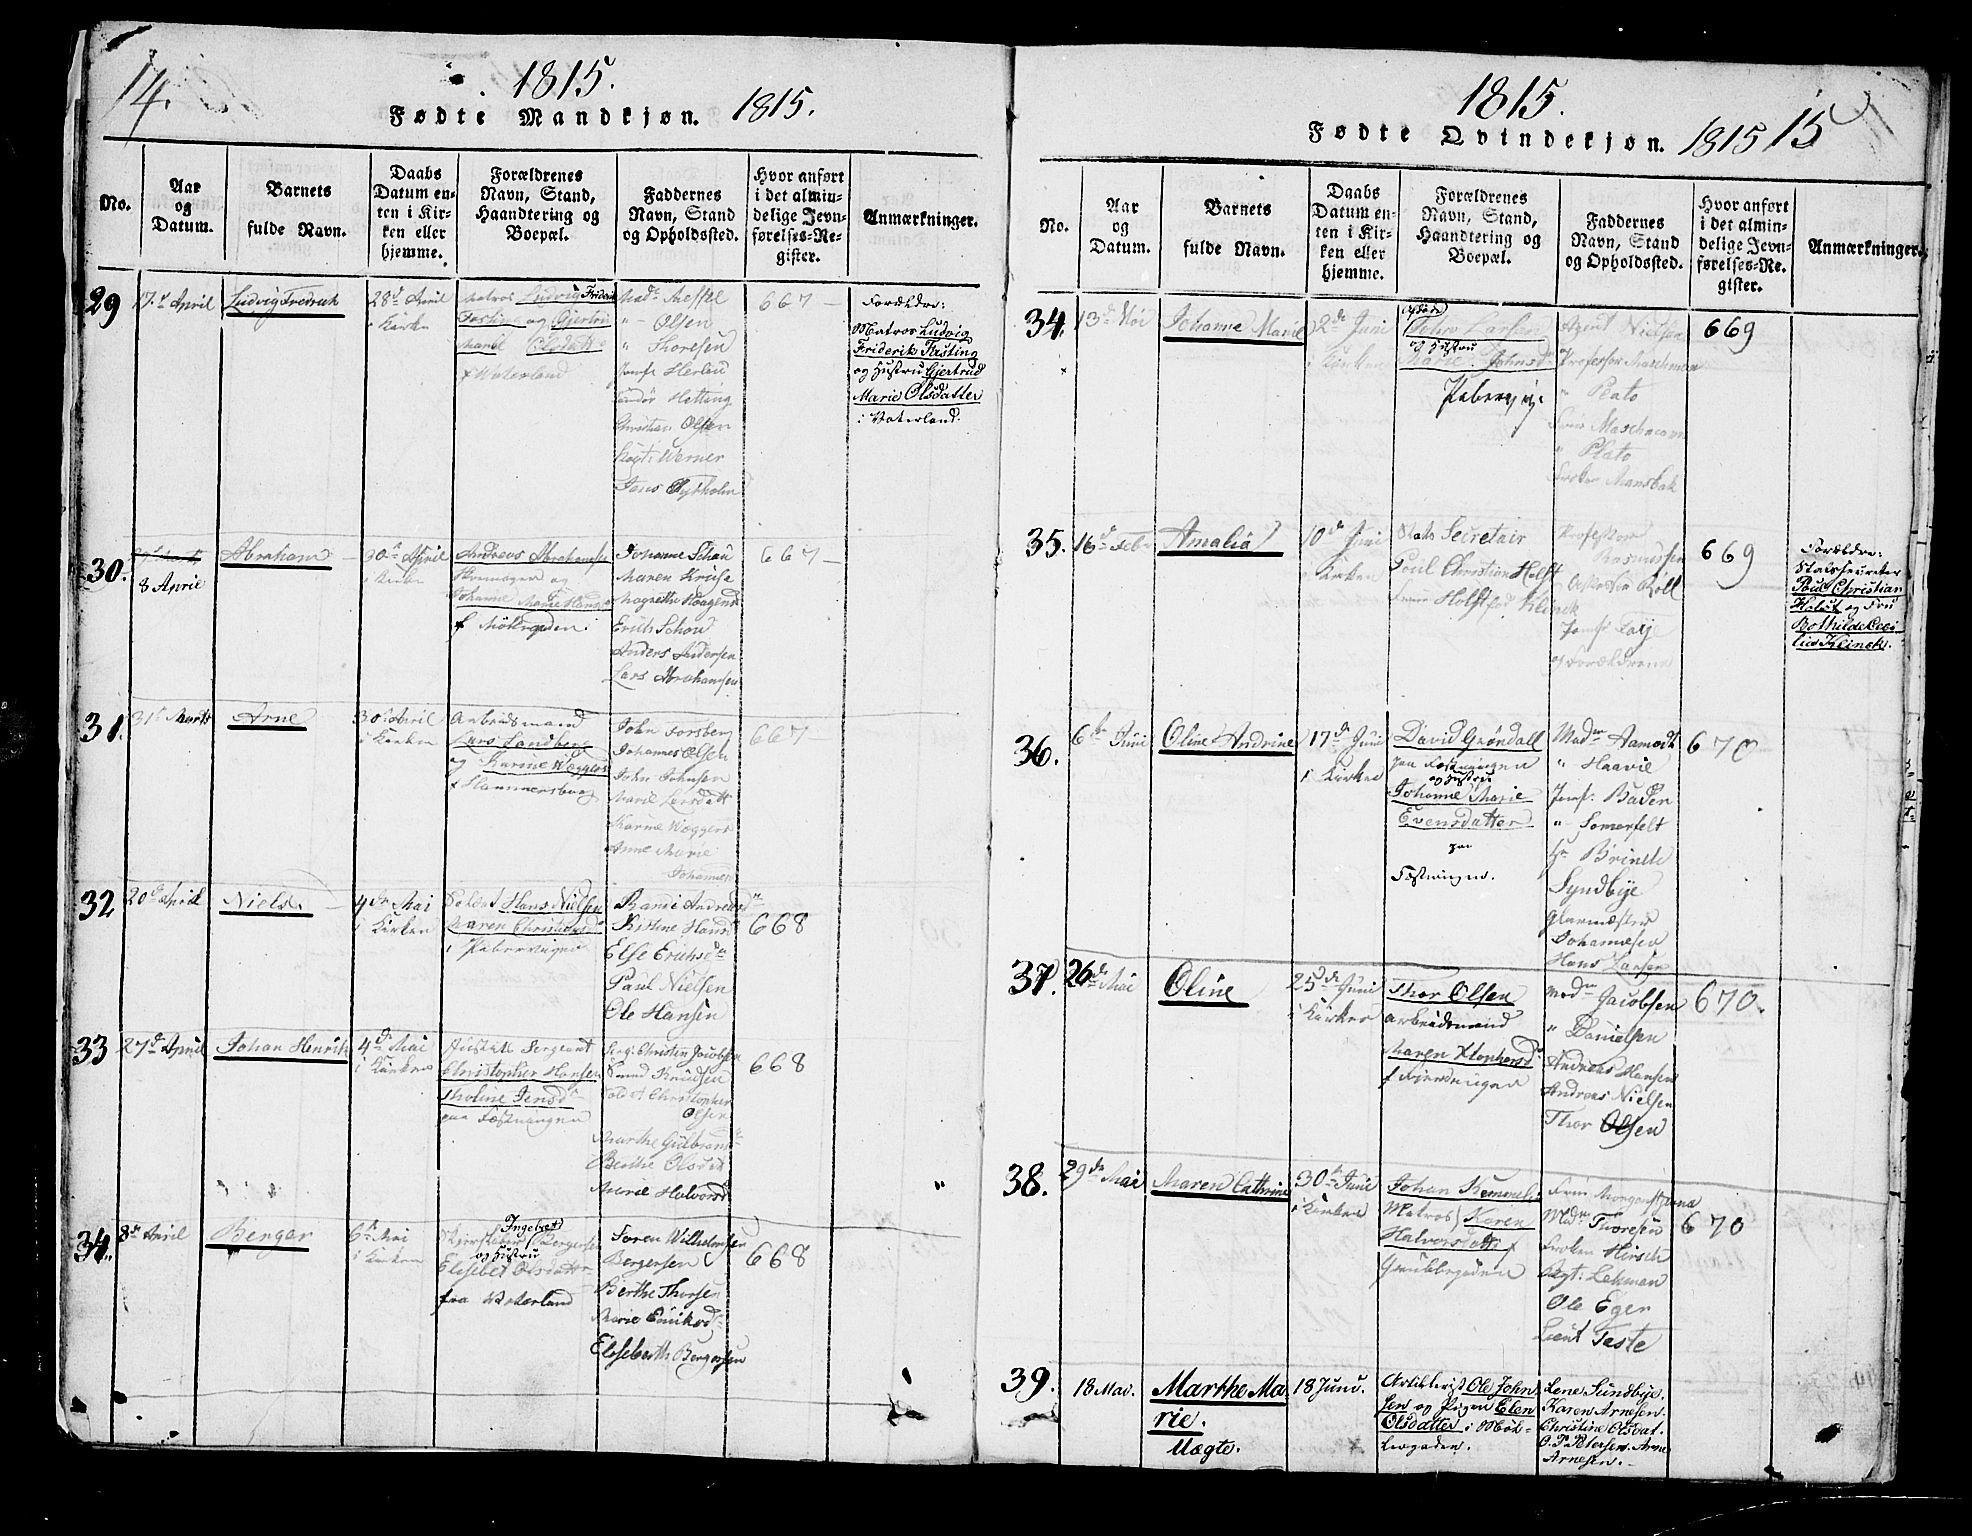 14.
1815.
Fødte Mandkjøn. 1815.
No.
Aar og Datum.
Barnets fulde Navn.
Daabs Datum enten i Kirken eller hjemme.
Forældrenes Navn, Stand, Haandtering og Boepæl.
Faddernes Navn, Stand og Opholdssted.
Hvor anført i det almindelige Jevnførelses-Register.
Anmærkninger.
29
17de April
Ludvig Fredrich
28de April
i Kirken
Matros Ludvig Friderik
Fasting og Gjertru
Marie Olsdatt
f Waterland
Madm Messel
" Olsen
" Thoresen
Jomf Herlin
Hetting
Christian Olsen
Werner
Jens Dybholm
667
Forældre:
Matros Ludvig
Friderik Fasting
og Hustru Gjertrud
Marie Olsdatter
i Vaterland.
30.
8 April
Abraham
30te April
i Kirken
Andreas Abrahamse
og
Johanne Marie Hans
f Møllergaden
Johanne Schou
Maren Kruse
Magrethe Haagens
Erich Schou
Anders Andersen
Lars Abrahamsen
667
31.
31te Marts
Arne
30te April
i Kirken
Arbeidsmand
Lars Sandberg
og Karine Wægger
f Hammersborg
John Forsberg
Johannes Olsen
John Johnsen
Marie Larsdatt
Karine Wæggers
Anne Marie
Johannes
667
32
20de April
Niels.
4de Mai
i Kirken
Soldat Hans Nielsen
Maren Christiansd
i Pibervigen
Randi Andreasdr
Kistine Hansd
Else Erichsdr
Paul Nielsen
Ole Hansen
668
33
27de April
Johan Henrik
4de Mai
i Kirken
Sergeant
Christopher Hansen
Tholine Jensd
paa Fæstningen
Serg: Christin Jacobsen
Svend Knudsen
Soldat Christopher
Olsen
Marthe Gulbrands
Berthe Olsdatt
Marie Halvorsd
668
34.
8de April
Berger
6te Mai
i Kirken
Ingebret
Bergersen
og Hustru
Elisebet Olsdatt
fra Waterland
Søren Wilhelmsen
Bergersen
Berthe Thorsen
Marie
Elisebeth Bergersen
668
1815.
Fødte Qvindekjøn. 1815 15
No.
Aar og Datum.
Barnets fulde Navn.
Daabs Datum enten i Kirken eller hjemme.
Forældrenes Navn, Stand, Haandtering og Boepæl.
Faddernes Navn, Stand og Opholdssted.
Hvor anført i det almindelige Jevnførelses-Register.
Anmærkninger.
34.
13de Mai
Johanne Marie
2de Juni
i Kirken
John Larsen
og Hustru
Marie Johnsdr
Pibervig:
Agent Nielsen
Professor Maschman
" Plato
Frue Maschmann
" Plato
Frøken Mansbak
669
35.
16de Febr
Amalia
10de Juni
i Kirken
Stats Secretair
Poul Christian Holst
Frue Holst fød Klinck
Professor
Rasmussen
Jomf
og Forældrene
669
Forældre:
Statssecretær
Poul Christian
Holst og Fru
Bothilde Ceci
lia Klinck.
36.
6te Juni
Oline Andrine
17de Juni
i Kirken
David Grøndall
paa Fæstningen
og Hustru
Johanne Marie
Evensdatter
paa
Fæstningen.
Madm Aamodt
" Haavie
Jomf: Baden
" Somerfelt
Hr Brinch
Syndbye
Glarmester
Johannesen
Hans Larsen
670
37.
26de Mai
Oline
25de Juni
i Kirken
Thor Olsen
Arbeidsmand
Maren Xtophersd
f Fierdingen
Madm Jacobsen
" Danielsen
Andreas Hansen
Andreas Nielsen
Thor Olsen
670.
38.
29de Mai
Maren Cathrine
30te Juni
i Kirken
Johan
Matros Karen
Halvorsdatt f
Grubbegaden
Frue Morgenstierne
Madm Thoresen
Frøken Hirsch
Lehman
Ole Eger
Lieut Teste
670
39.
18 Mai.
Marthe Ma
rie.
Uægte.
18 Juni.
Artillerist Ole John
sen og Pigen Elen
Olsdatter i Møl-
lergaden.
Lene Sundbye.
Karen Arnesen.
Christine Olsdat.
O. P. Petersen. Arne
Arnesen.